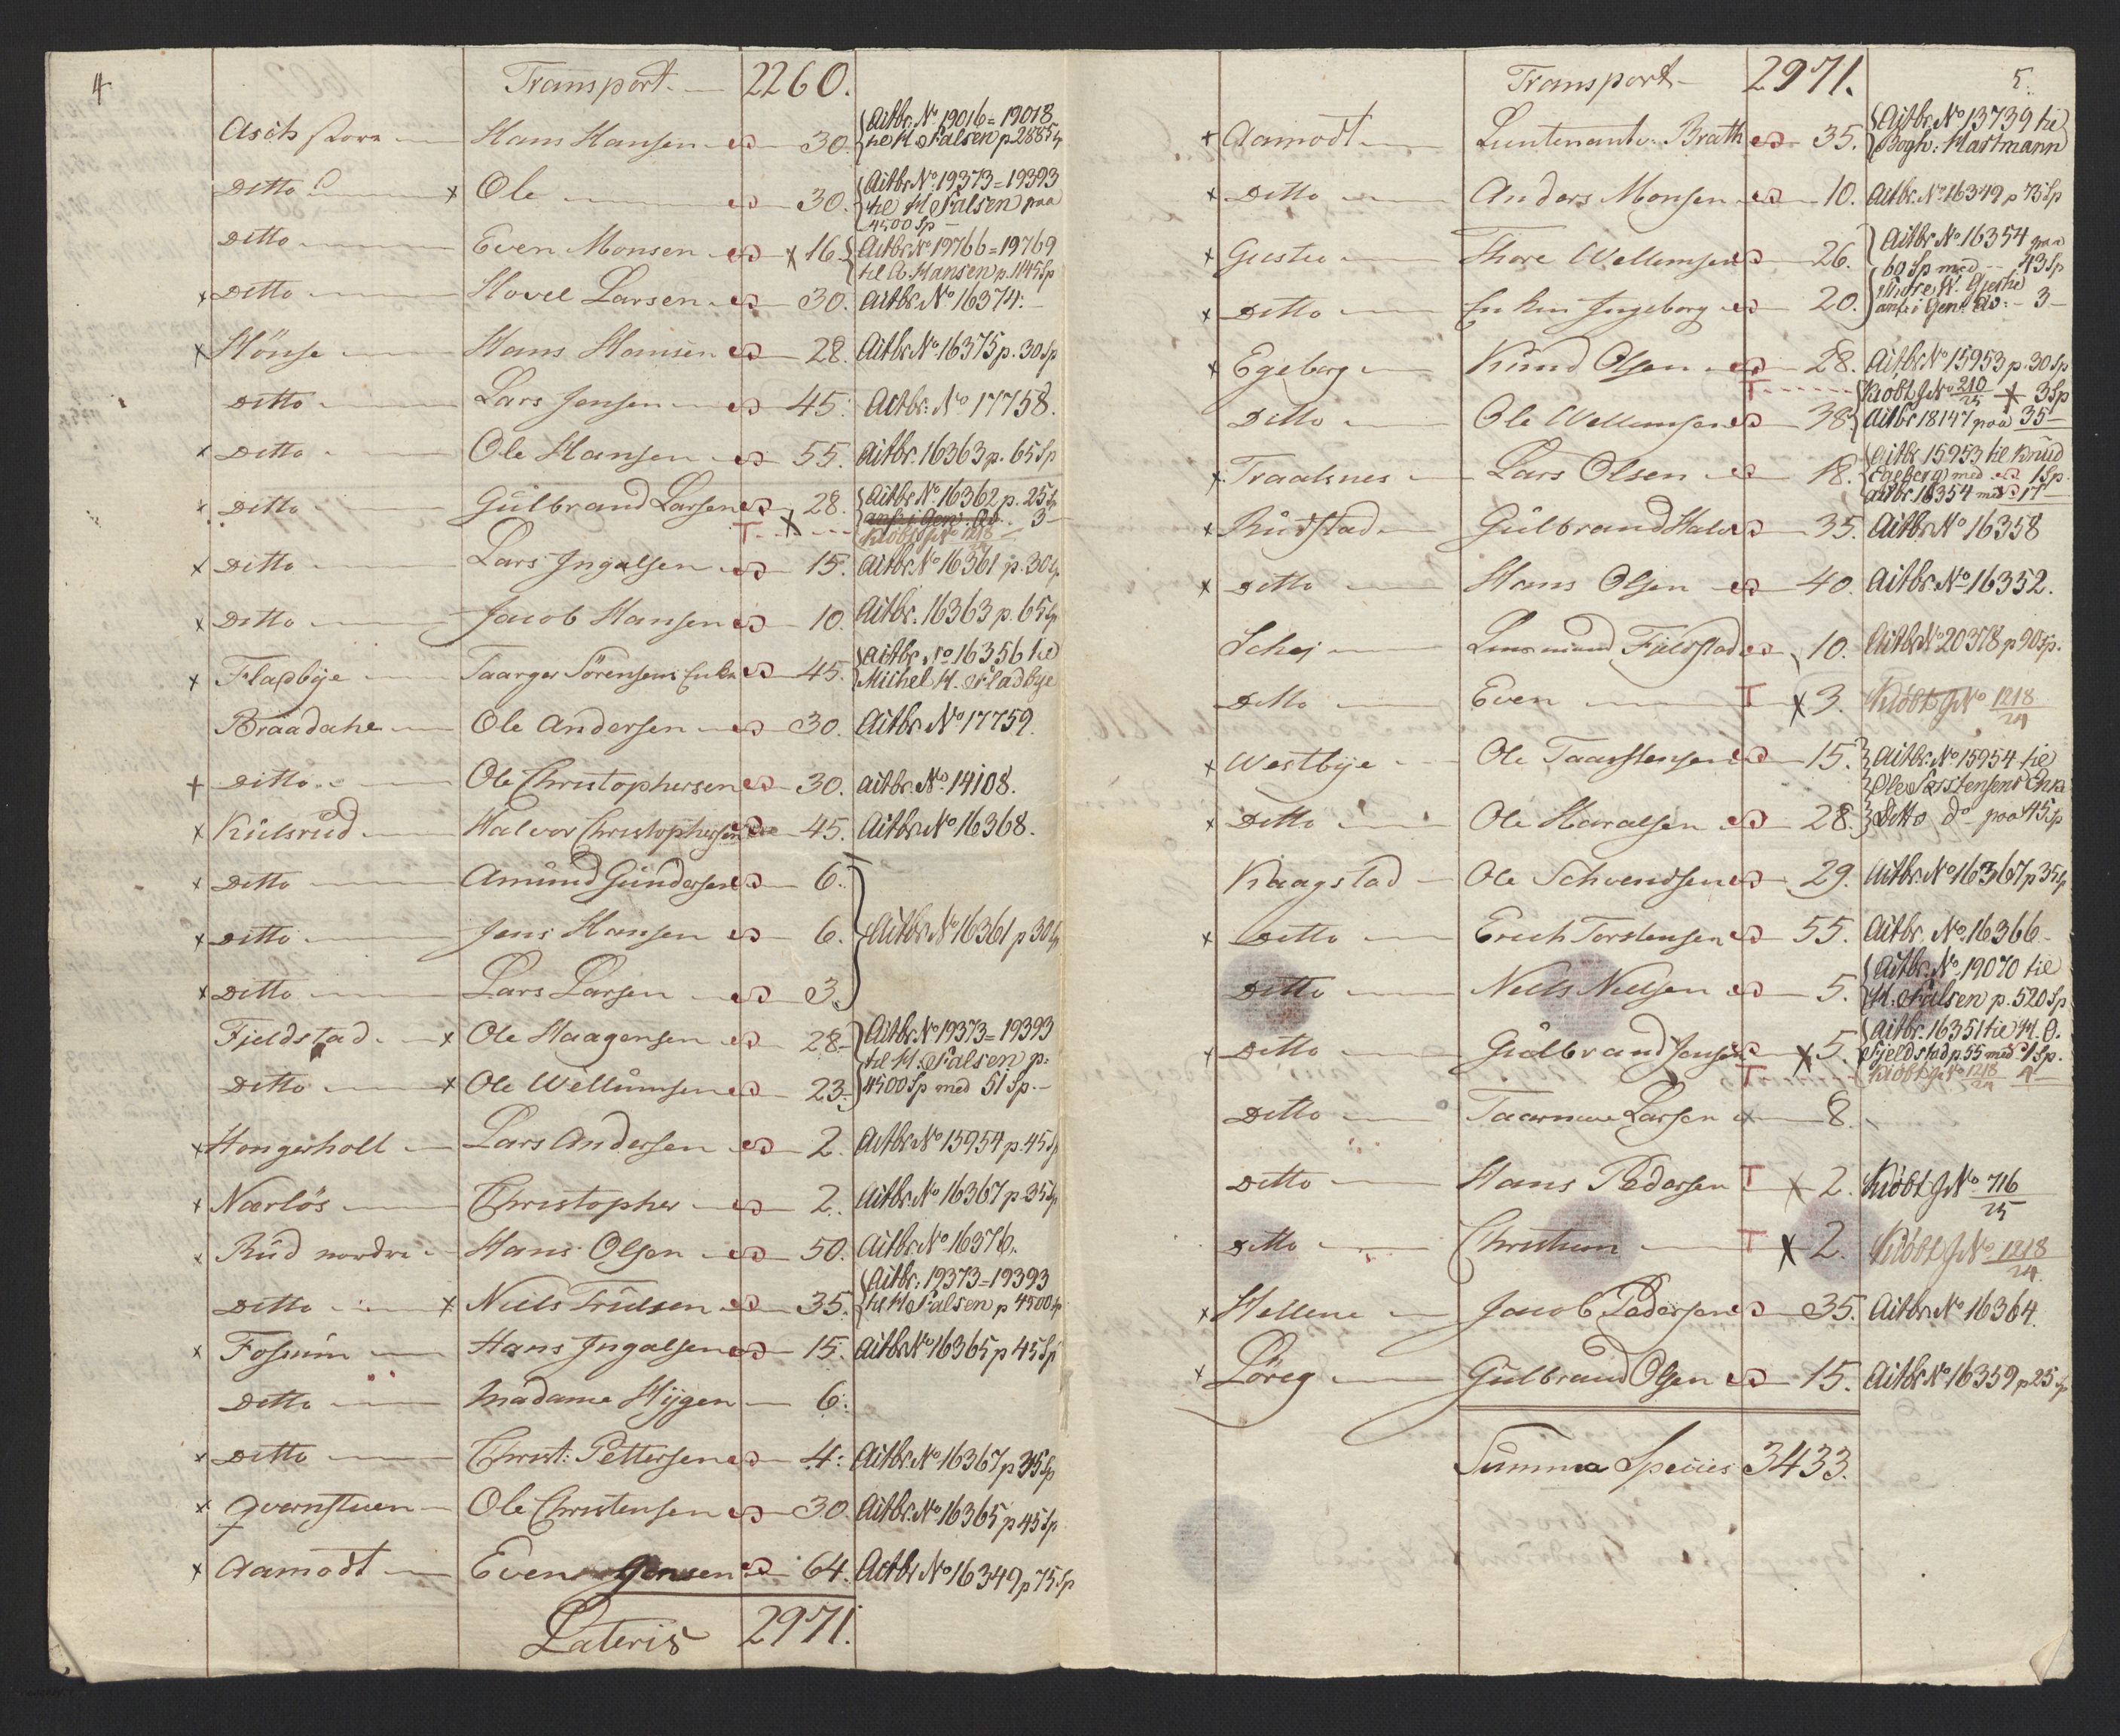 4
Transport 2260.
Asch store Hans Hansen 30. Aitbr. No 19016=19018
til H. Falsen p. 2885 Sp
Ditto x Ole 30. Aitbr No 19373=19393
til H. Falsen paa
4500 Sp
Ditto Even Monsen x 16 Aitbr. No 19766=19769
til A. Hansen p. 1145 Sp
x Ditto Hovel Larsen 30. Aitbr. No 16374.
x Hönse Hans Hansen 28. Aitbr. No 16375 p. 30 Sp
Ditto Lars Jensen 45. Aitbr. No 17758.
x Ditto Ole Hansen 55. Aitbr. 16363 p. 65 Sp
x Ditto Gulbrand Larsen 28. Aitbr. No 16362 p. 25 Sp
T x anf. i Gen. 3
Kiöbt J No 1218
x Ditto Lars Ingalsen 15. Aitbr. No 16361 p. 30 Sp
x Ditto Jacob Hansen 10. Aitbr. 16363 p. 65 Sp
x Fladbye Taarger Sörensens Enke 45. Aitbr. No 16356 til
Michel H. Fladbye
Braadahe Ole Andersen 30. Aitbr. No 17759.
+ Ditto Ole Christophersen 30. Aitbr. No 14108.
x Kulsrud Halvor Christophersen 45. Aitbr. No 16368.
x Ditto Amund Gundersen 6.
x Ditto Jens Hansen 6. Aitbr. No 16361 p 30 Sp
x Ditto Lars Larsen 3.
Fjeldstad x Ole Haagensen 28. Aitbr. No 19373=19393
til H. Falsen p.
Ditto x Ole Wellumsen 23. 4500 Sp med 51 Sp.
x Hongerholt Lars Andersen 2. Aitbr. No 15954 p. 45 Sp
x Nærlös Christopher 2. Aitbr. No 16367 p. 35 Sp
x Rud nordre Hans Olsen 50. Aitbr. No 16376.
Ditto x Niels Trulsen 35. Aitbr. 19373=19393
til H. Falsen p 4500 Sp
x Fossum Hans Ingalsen 15. Aitbr. No 16365 p 45 Sp
Ditto Madame Hygen 6.
x Ditto Christ: Pettersen 4. Aitbr. No 16367 p 35 Sp
x Qvernstuen Ole Christensen 30. Aitbr. No 16365 p 45 Sp
x Aamodt Even Jensen 64. Aitbr No 16349 p 75 Sp
Lateris 2971.
Transport 2971. 5.
x Aamodt Lieutenant Brath 35. Aitbr. No 13739 til
Bogh: Hartmann
x Ditto Anders Monsen 10. Aitbr. No 16349 p 75 Sp
x Giestie Thore Wellumsen 26. Aitbr. No 16354 paa
60 Sp med 43 Sp
x Ditto Enken Ingeborg 20. Thore W. Gjestie
anf. i Gen. 3
x Egeberg Knud Olsen 28. Aitbr. No 15953 p. 30 Sp
T Kiöbt J No 210/25 x 3 Sp
Ditto Ole Wellumsen 38. Aitbr 18147 paa 35
x Traalsnes Lars Olsen 18. Aitbr 15953 til Knud
Egeberg med 1 Sp.
Aitbr. 16354 med 17
x Rudstad Gulbrand Halv 35. Aitbr. No 16358
x Ditto Hans Olsen 40. Aitbr. No 16352.
Schej Fjeldstad 10. Aitbr. No 20378 p 90 Sp.
Ditto Even T x 3. Kiöbt J No 1218/24
x Westbye Ole Taarstensen 15. Aitbr. No 15954 til
Ole Tarstensens Enke
x Ditto Ole Haralsen 28. Ditto do paa 45 Sp
Kaagstad Ole Schvendsen 29. Aitbr. No 16367 p 35 Sp
x Ditto Erich Torstensen 55. Aitbr. No 16366
Ditto Niels Nielsen 5. Aitbr. No 19070 til
H. Falsen p. 520 Sp
x Ditto Gulbrand Jensen x 5. Aitbr. 16351 til H. O.
Fjeldstad p. 55 med 1 Sp.
T Kiöbt J No 1218/24 4
Ditto Larsen x 8.
Ditto Hans Pedersen T x 2. Kiöbt J No 716/25
Ditto Christian T x 2. Kiöbt J No 1218/24
x Hellene Jacob Pedersen 35. Aitbr. No 16364.
x Löreg Gulbrand Olsen 15. Aitbr. No 16359 p 25 Sp
Summa Species 3433.